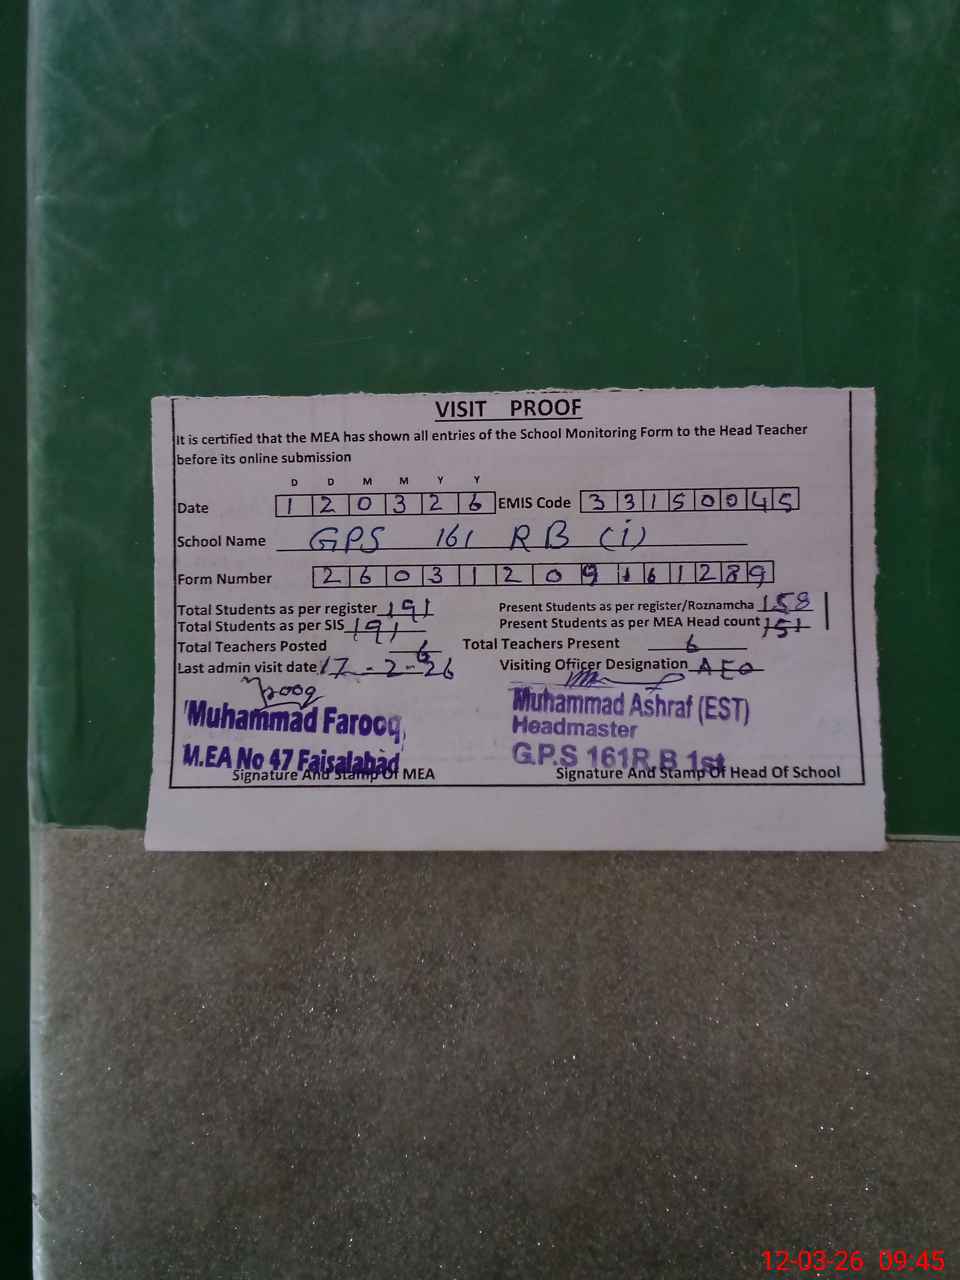 VISIT PROOF
It is certified that the MEA has shown all entries of the School Monitoring Form to the Head Teacher
before its online submission
D D M M Y Y
Date 1 2 0 3 2 6 EMIS Code 3 3 1 5 0 0 4 5
School Name GPS 161 RB (i)
Form Number 2 6 0 3 1 2 0 9 1 6 1 2 8 9
Total Students as per register 191 Present Students as per register/Roznamcha 158
Total Students as per SIS 191 Present Students as per MEA Head count 151
Total Teachers Posted 6 Total Teachers Present 6
Last admin visit date 17-2-26 Visiting Officer Designation AEO
Muhammad Farooq, Muhammad Ashraf (EST)
Headmaster
M.EA No 47 Faisalabad G.P.S 161R.B 1st
Signature And Stamp Of MEA Signature And Stamp Of Head Of School
12-03-26 09:45